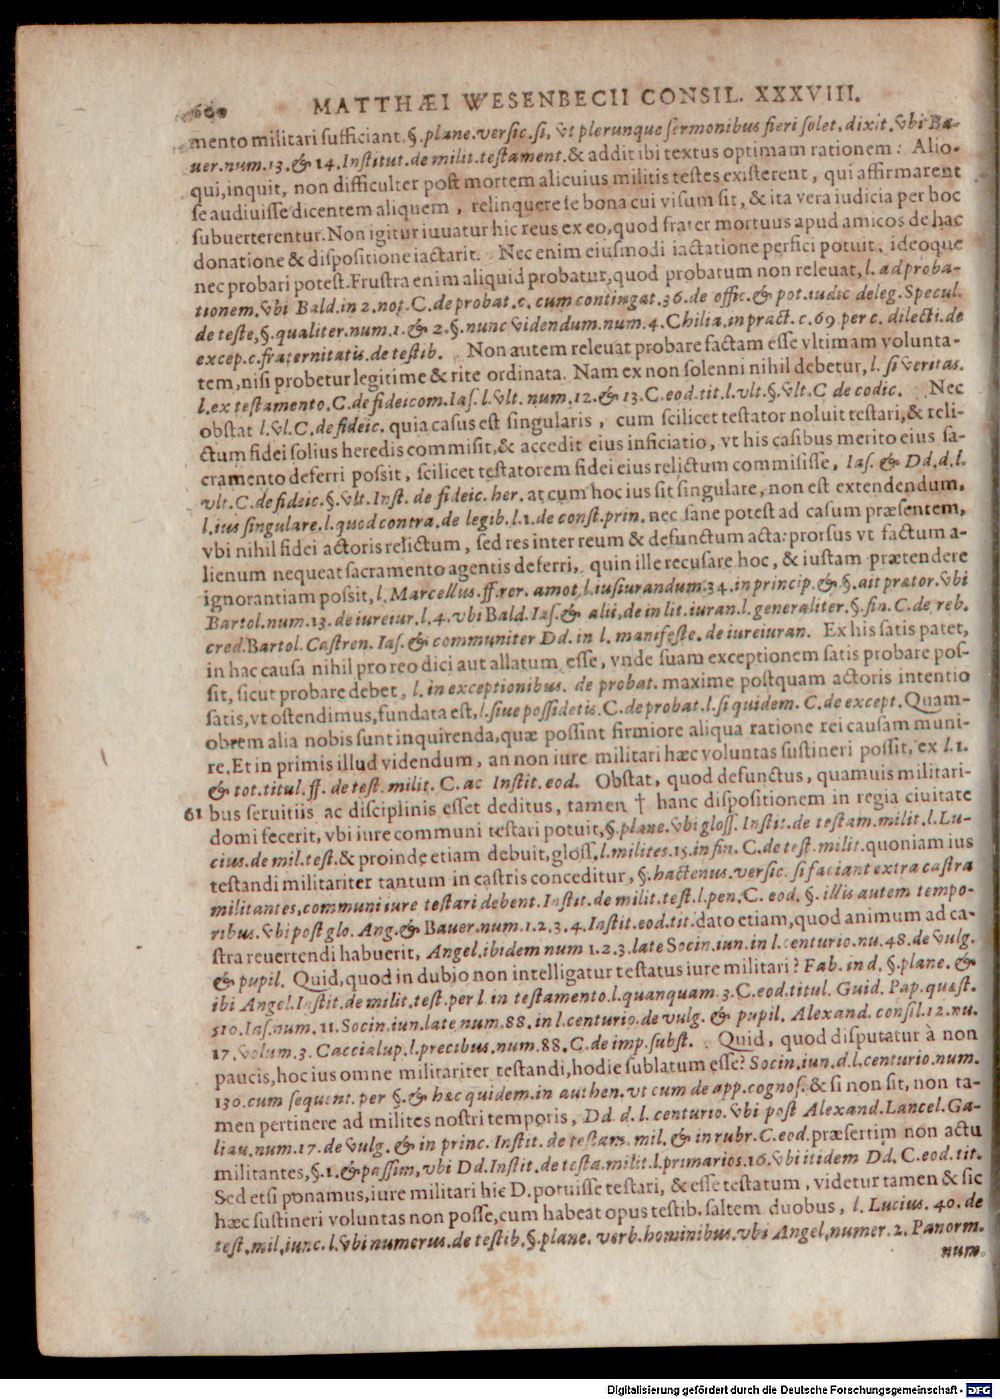 MATTHÆI WESENBECII CONSIL. XXXVIII.
mento militari sufficiant, §. plane. versic. si, vt plerunque sermonibus fieri solet, dixit. vbi Ba-
uer. num. 13. & 14. Institut. de milit. testament. & addit ibi textus optimam rationem: Alio-
qui, inquit, non difficulter post mortem alicuius militis testes existerent, qui affirmarent
se audiuisse dicentem aliquem, relinquere se bona cui visum sit, & ita vera iudicia per hoc
subuerterentur. Non igitur iuuatur hic reus ex eo, quod frater mortuus apud amicos de hac
donatione & dispositione iactarit. Nec enim eiusmodi iactatione perfici potuit, ideoque
nec probari potest. Frustra enim aliquid probatur, quod probatum non releuat, l. ad proba-
tionem. vbi Bald. in 2. not. C. de probat. c. cum contingat. 36. de offic. & pot. iudic deleg. Specul.
de teste, §. qualiter. num. 1. & 2. §. nunc videndum. num. 4. Chilia. in pract. c. 69. per c. dilecti. de
excep. c. fraternitatis. de testib. Non autem releuat probare factam esse vltimam volunta-
tem, nisi probetur legitime & rite ordinata. Nam ex non solenni nihil debetur, l. si veritas.
l. ex testamento. C. de fideicom. Ias. l. vlt. num. 12. & 13. C. eod. tit. l. vlt. §. vlt. C de codic. Nec
obstat l. vl. C. de fideic. quia casus est singularis, cum scilicet testator noluit testari, & reli-
ctum fidei solius heredis commisit, & accedit eius inficiatio, vt his casibus merito eius sa-
cramento deferri possit, scilicet testatorem fidei eius relictum commisisse, Ias. & Dd. d. l.
vlt. C. de fideic. §. vlt. Inst. de fideic. her. at cum hoc ius sit singulare, non est extendendum,
l. ius singulare. l. quod contra. de legib. l. 1. de const. prin. nec sane potest ad casum præsentem,
vbi nihil fidei actoris relictum, sed res inter reum & defunctum acta: prorsus vt factum a-
lienum nequeat sacramento agentis deferri, quin ille recusare hoc, & iustam prætendere
ignorantiam possit, l. Marcellus. ff. rer. amot. l. iusiurandum. 34. in princip. & §. ait prætor. vbi
Bartol. num. 13. de iureiur. l. 4. vbi Bald. Ias. & alii, de in lit. iuran. l. generaliter. §. fin. C. de reb.
cred. Bartol. Castren. Ias. & communiter Dd. in l. manifeste. de iureiuran. Ex his satis patet,
in hac causa nihil pro reo dici aut allatum esse, vnde suam exceptionem satis probare pos-
sit, sicut probare debet, l. in exceptionibus. de probat. maxime postquam actoris intentio
satis, vt ostendimus, fundata est, l. siue possidetis. C. de probat. l. si quidem. C. de except. Quam-
obrem alia nobis sunt inquirenda, quæ possint firmiore aliqua ratione rei causam muni-
re. Et in primis illud videndum, an non iure militari hæc voluntas sustineri possit, ex l. 1.
& tot. titul. ff. de test. milit. C. ac Instit. eod. Obstat, quod defunctus, quamuis militari-
61 bus seruitiis ac disciplinis esset deditus, tamen † hanc dispositionem in regia ciuitate
domi fecerit, vbi iure communi testari potuit, §. plane. vbi gloss. Instit. de testam. milit. l. Lu-
cius. de mil. test. & proinde etiam debuit, gloss. l. milites. 15. in fin. C. de test. milit. quoniam ius
testandi militariter tantum in castris conceditur, §. hactenus. versic. si faciant extra castra
militantes, communi iure testari debent. Instit. de milit. test. l. pen. C. eod. §. illis autem tempo-
ribus. vbi post glo. Ang. & Bauer. num. 1. 2. 3. 4. Instit. eod. tit. dato etiam, quod animum ad ca-
stra reuertendi habuerit, Angel. ibidem num 1. 2. 3. late Socin. iun. in l. centurio. nu. 48. de vulg.
& pupil. Quid, quod in dubio non intelligatur testatus iure militari? Fab. in d. §. plane. &
ibi Angel. Instit. de milit. test. per l. in testamento. l. quanquam. 3. C. eod. titul. Guid. Pap. quæst.
510. Ias. num. 11. Socin. iun. late num. 88. in l. centurio. de vulg. & pupil. Alexand. consil. 12. nu.
17. volum. 3. Caccialup. l. precibus. num. 88. C. de imp. subst. Quid, quod disputatur à non
paucis, hoc ius omne militariter testandi, hodie sublatum esse? Socin. iun. d. l. centurio. num.
130. cum sequent. per §. & hæc quidem. in authen. vt cum de app. cognos. & si non sit, non ta-
men pertinere ad milites nostri temporis, Dd. d. l. centurio. vbi post Alexand. Lancel. Ga-
liau. num. 17. de vulg. & in princ. Instit. de testam. mil. & in rubr. C. eod. præsertim non actu
militantes, §. 1. & passim, vbi Dd. Instit. de testa. milit. l. primarios. 16. vbi itidem Dd. C. eod. tit.
Sed etsi ponamus, iure militari hic D. potuisse testari, & esse testatum, videtur tamen & sic
hæc sustineri voluntas non posse, cum habeat opus testib. saltem duobus, l. Lucius. 40. de
test. mil. iunc. l. vbi numerus. de testib. §. plane. verb. hominibus. vbi Angel. numer. 2. Panorm.
num.
Digitalisierung gefördert durch die Deutsche Forschungsgemeinschaft - DFG